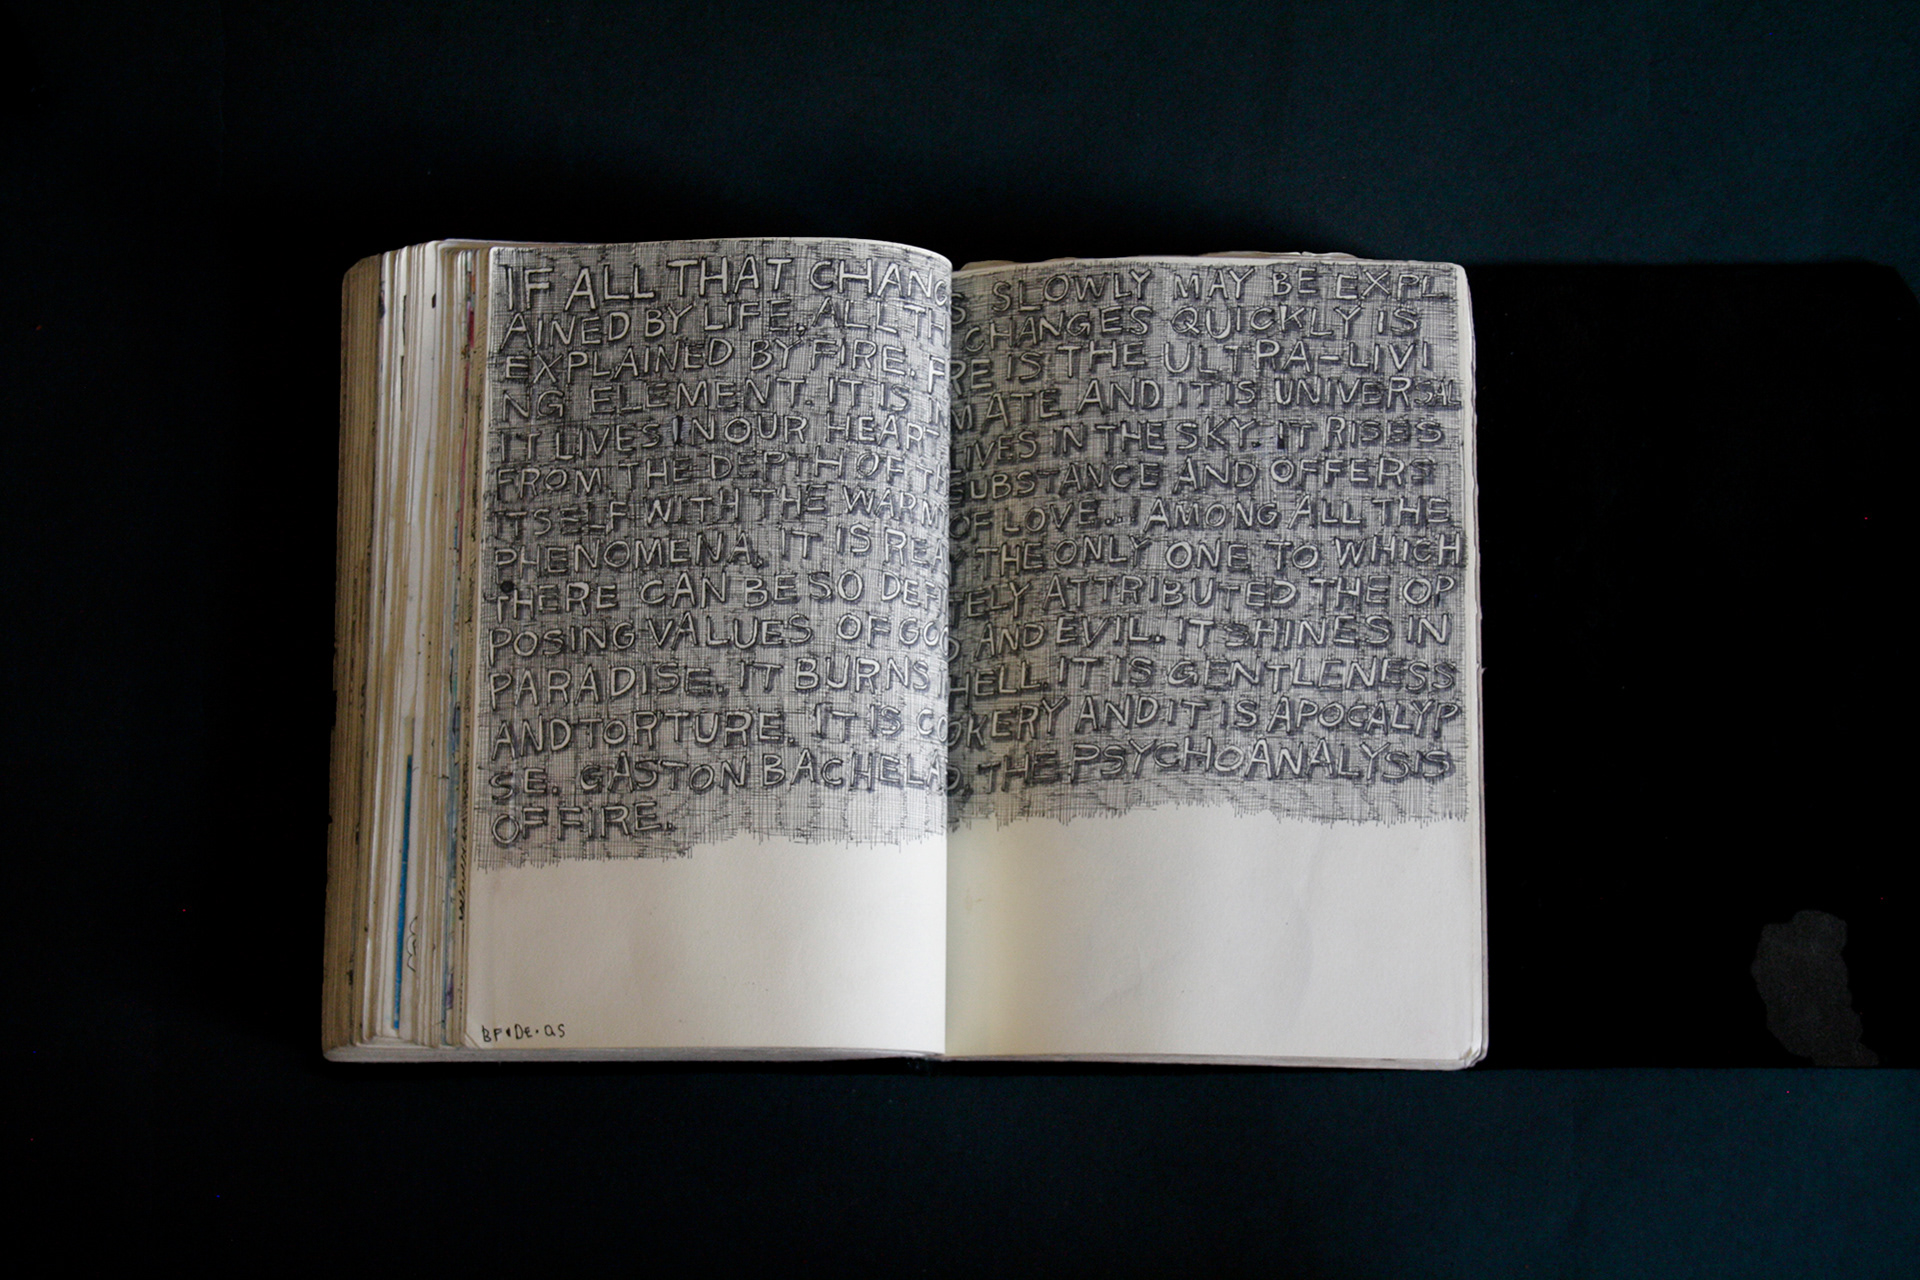 IF ALL THAT CHANGES SLOWLY MAY BE EXPL
AINED BY LIFE, ALL THAT CHANGES QUICKLY IS
EXPLAINED BY FIRE. FIRE IS THE ULTRA-LIVI
NG ELEMENT. IT IS INTIMATE AND IT IS UNIVERSAL
IT LIVES IN OUR HEART. IT LIVES IN THE SKY. IT RISES
FROM THE DEPTH OF THE SUBSTANCE AND OFFERS
ITSELF WITH THE WARMTH OF LOVE... AMONG ALL THE
PHENOMENA, IT IS REALLY THE ONLY ONE TO WHICH
THERE CAN BE SO DEFINITELY ATTRIBUTED THE OP
POSING VALUES OF GOOD AND EVIL. IT SHINES IN
PARADISE. IT BURNS IN HELL IT IS GENTLENESS
AND TORTURE. IT IS COOKERY AND IT IS APOCALYP
SE. GASTON BACHELARD, THE PSYCHOANALYSIS
OF FIRE.
BP•DE•QS